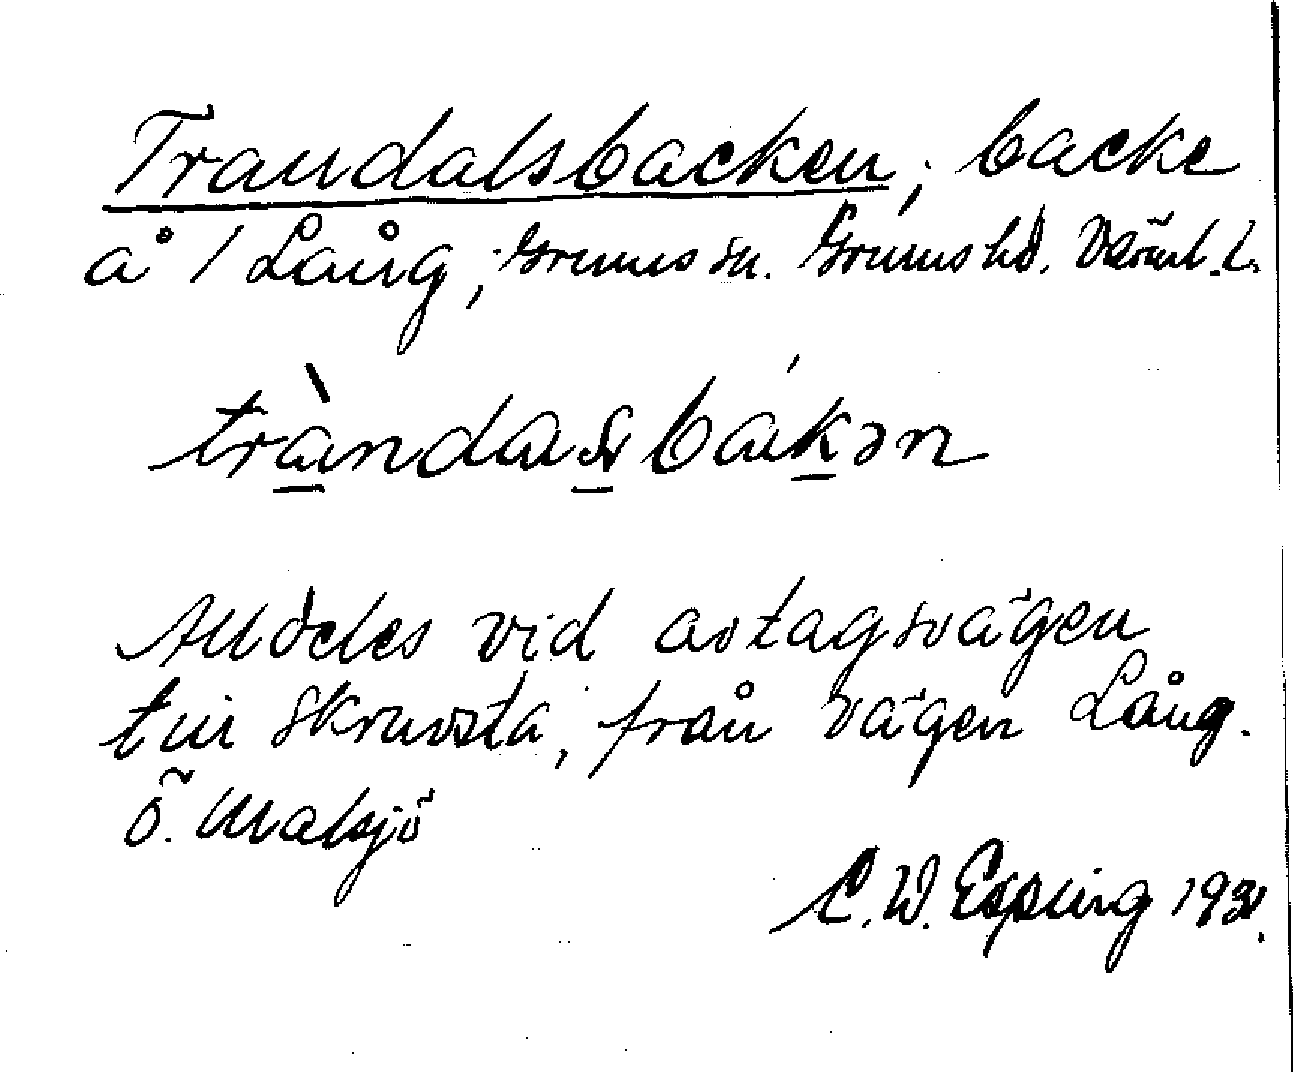 Trandalsbacken, backe
å 1 Lång, Grums sn. Grums hd. Värml. l.
tràndasbákən
Alldeles vid avtagsvägen
till Skruvsta, från vägen Lång.
Ö. Malsjö
C. W. Esping 193